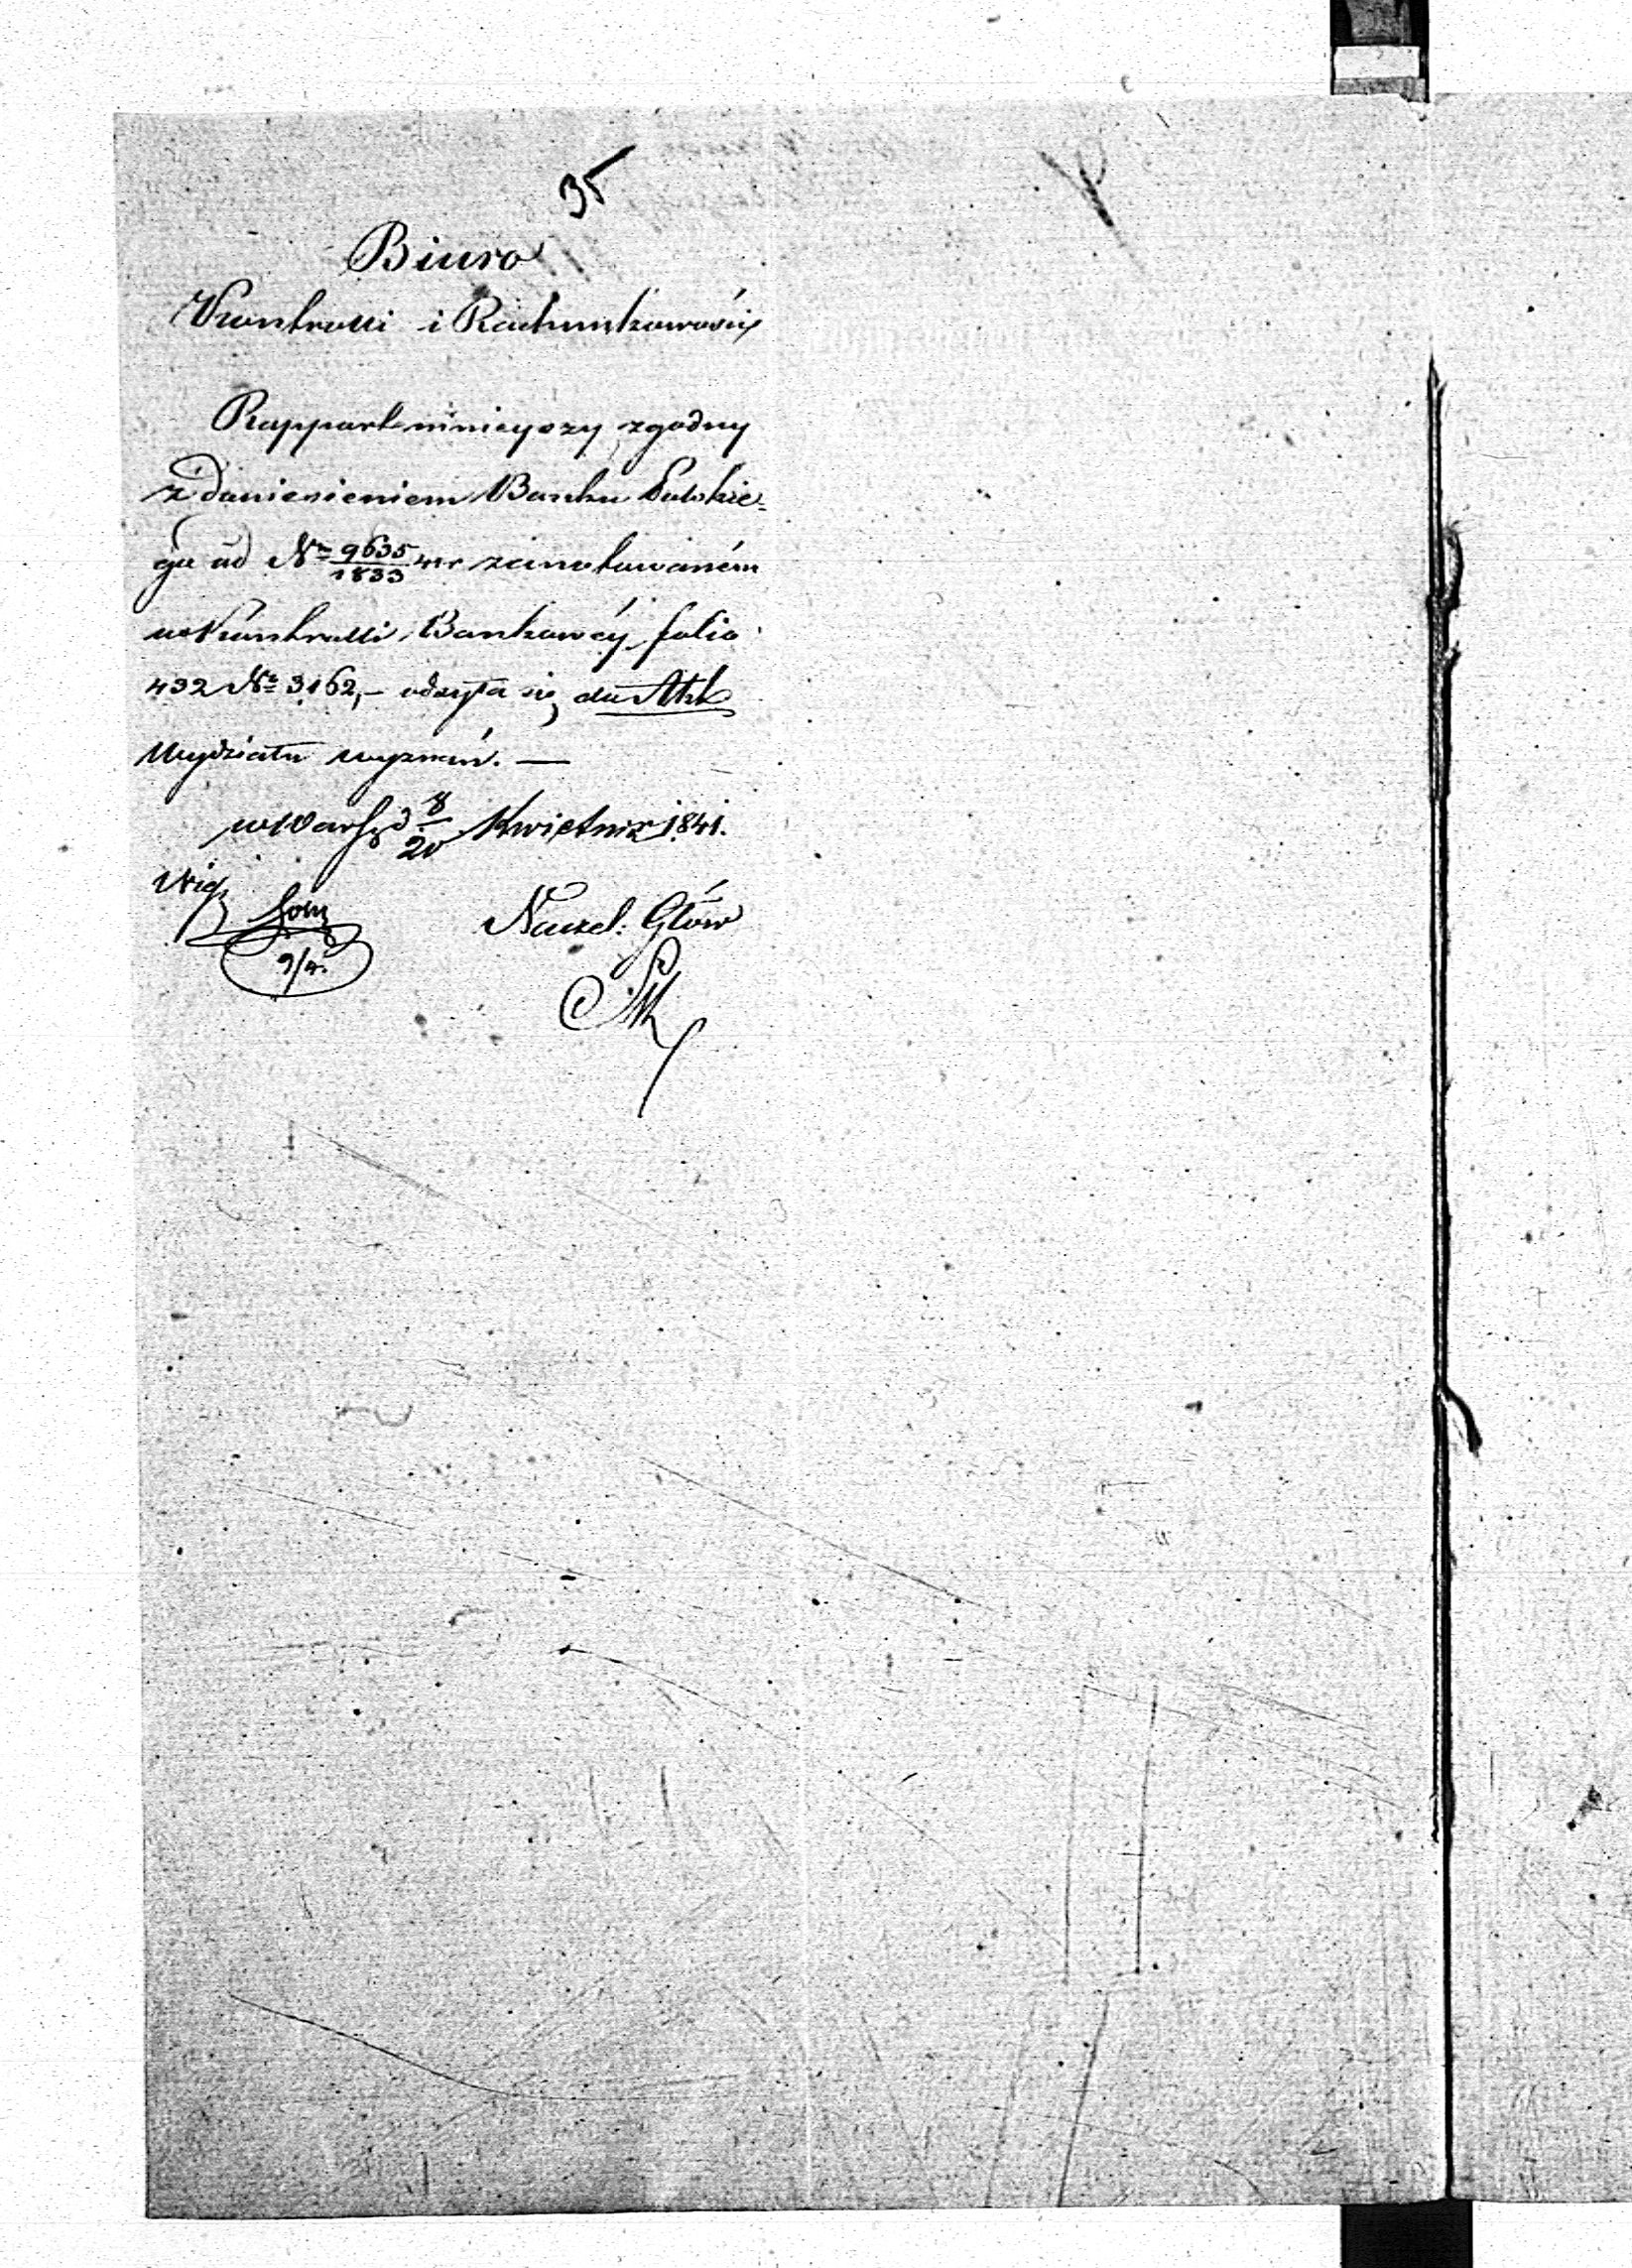 35
Biuro
Kontrolli i Rachunkowości
Rapport niniejszy zgodny
z doniesieniem Banku Polskie=
go ad Nr 9635/1833 zanotowaném
w Kontrolli Bankowéj folio
432 Nr 3162,- odsyła się do Akt
Wydziału wyznań. —
w Warsz. d. 8/20 Kwietnia 1841.
Naczel: Głów
9/4.